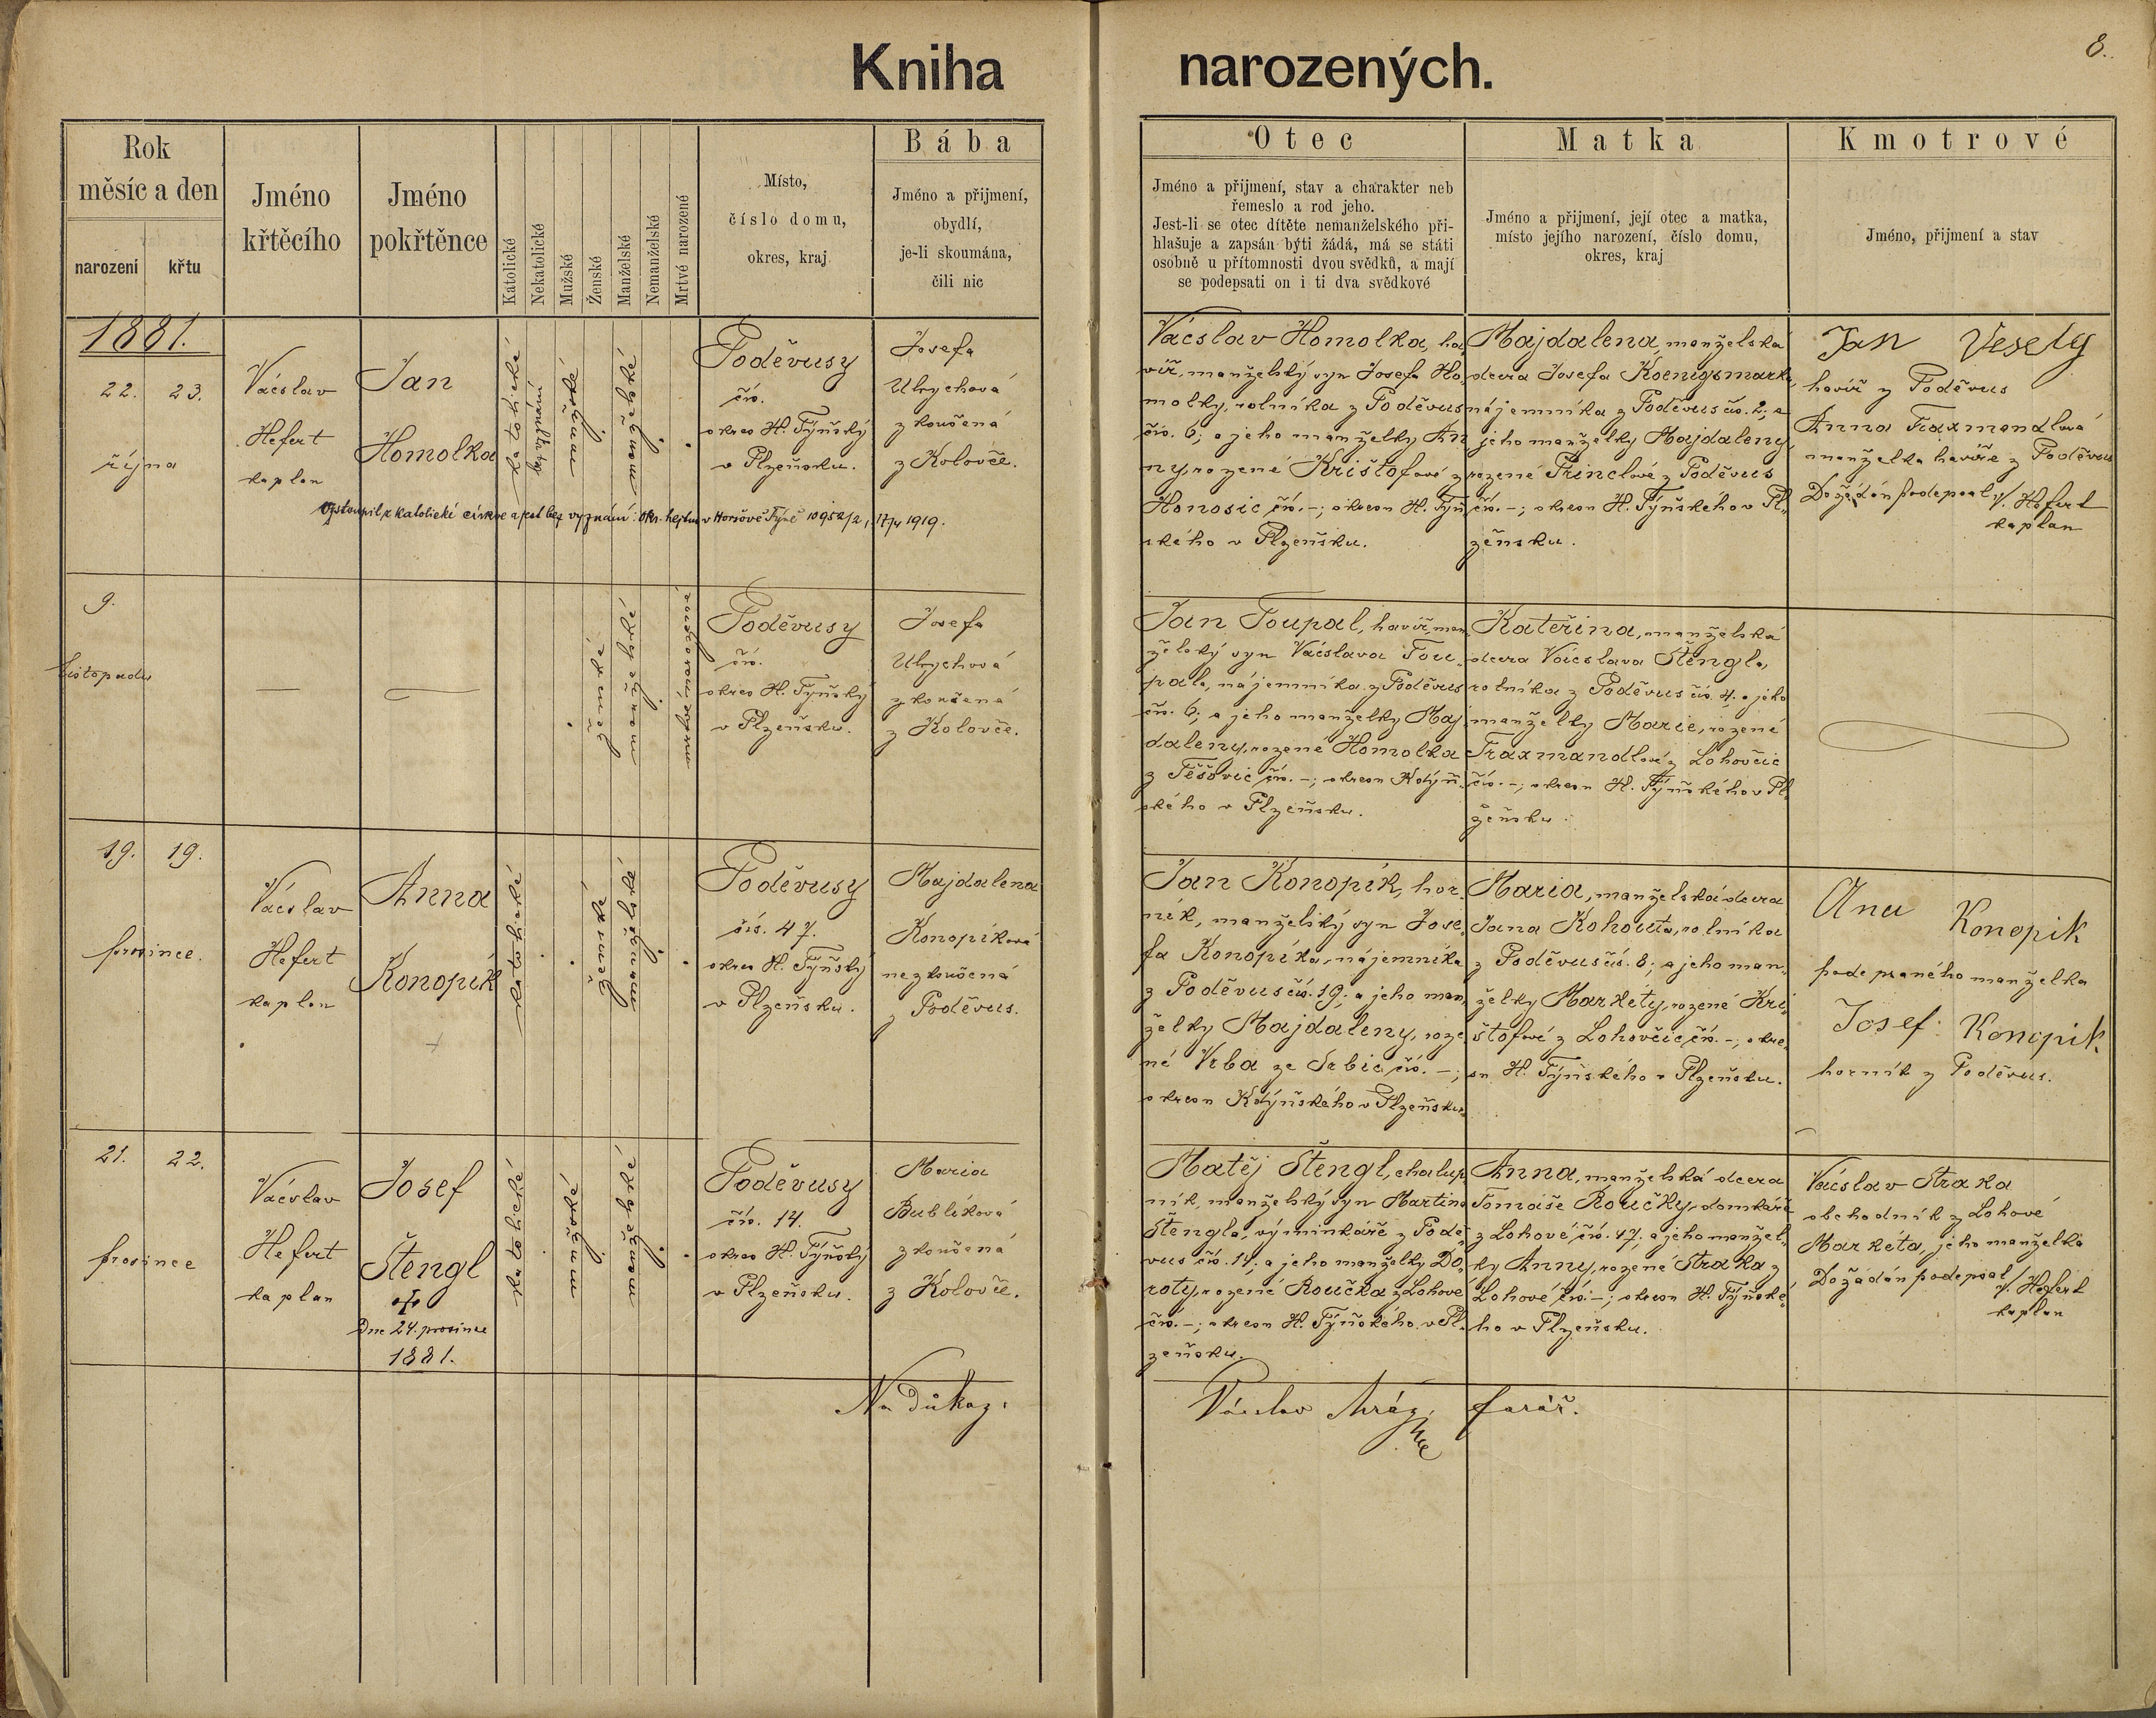 Kniha narozených.
8.
Rok
měsíc a den
narození
křtu
Jméno
křtěcího
Jméno
pokřtěnce
Katolické
Nekatolické
Mužské
Ženské
Manželské
Nemanželské
Mrtvé narozené
Místo,
číslo domu,
okres, kraj
Bába
Jméno a přijmení,
obydlí,
je-li skoumána,
čili nic
Otec
Jméno a přijmení, stav a charakter neb
řemeslo a rod jeho.
Jest-li se otec dítěte nemanželského při-
hlašuje a zapsán býti žádá, má se státi
osobně u přítomnosti dvou svědků, a mají
se podepsati on i ti dva svědkové
Matka
Jméno a přijmení, její otec a matka,
místo jejího narození, číslo domu,
okres, kraj
Kmotrové
Jméno, přijmení a stav
1881.
22. 23.
října
Vácslav
Hefert
kaplan
Jan
Homolka
katolické
bez vyznání
mužské
manželské
Poděvusy
čís.
okres H. Týňský
v Plzeňsku.
Josefa
Ulrychová
zkoušená
z Koloveč.
vystoupil z katolické církve a jest bez vyznání. Okr. hejtm. v Horšově Týně 10952/2, 17/4 1919.
Vácslav Homolka, ha-
víř, manželský syn Josefa Ho-
molky, rolníka z Poděvus
čís. 6; a jeho manželky An
ny, rozené Krištofové z
Honosic čís. -; okresu H. Týň
ského v Plzeňsku.
Majdalena, manželská
dcera Josefa Koenigsmarka,
nájemníka z Poděvus čís. 2; a
jeho manželky Majdaleny,
rozené Princlové z Poděvus
čís. -; okresu H. Týňského v Pl-
zeňsku.
Jan Vesely
havíř z Poděvus
Anna Traxmandlová
manželka havíře z Poděvus
Dožádán podepsal V. Hefert
kaplan
9.
listopadu
ženské
manželské
mrtvě narozené
Poděvusy
čís.
okres H. Týňský
v Plzeňsku.
Josefa
Ulrychová
zkoušená
z Koloveč.
Jan Toupal, havíř, man-
želský syn Vácslava Tou-
pala, nájemníka z Poděvus
čís. 6; a jeho manželky Maj
daleny, rozené Homolka
z Těšovic čís. -; okresu Kdýň-
ského v Plzeňsku.
Kateřina, manželská
dcera Vácslava Štengla,
rolníka z Poděvus čís. 4. a jeho
manželky Marie, rozené
Traxmandlové z Lohovčic
čís. -; okresu H. Týňského v Pl-
zeňsku.
19. 19.
prosince.
Vácslav
Hefert
kaplan
Anna
Konopík
+
katolické
ženské
manželské
Poděvusy
čís. 47.
okres H. Týňský
v Plzeňsku.
Majdalena
Konopíková
nezkoušená
z Poděvus.
Jan Konopík, hor-
ník, manželský syn Jose-
fa Konopíka, nájemníka
z Poděvus čís. 19; a jeho man-
želky Majdaleny, roze
né Vrba ze Srbic čís. -;
okresu Kdýňského v Plzeňsku.
Maria, manželská dcera
Jana Kohouta, rolníka
z Poděvus čís. 8; a jeho man-
želky Markéty, rozené Kri-
štofové z Lohovčic čís. -; okre-
su H. Týňského v Plzeňsku.
Ana Konopik
podepsaného manželka
Josef Konopik
horník z Poděvus.
21. 22.
prosince
Vácslav
Hefert
kaplan
Josef
Štengl
+
Dne 24. prosince
1881.
katolické
mužské
manželské
Poděvusy
čís. 14.
okres H. Týňský
v Plzeňsku.
Maria
Bublíková
zkoušená
z Koloveč.
Matěj Štengl, chalup
ník, manželský syn Martina
Štengla, výminkáře z Podě
vus čís. 14; a jeho manželky Do-
roty, rozené Roučka z Lohové
čís. -; okresu H. Týňského v Pl-
zeňsku.
Anna, manželská dcera
Tomáše Roučky, domkáře
z Lohové, čís. 47; a jeho manžel-
ky Anny, rozené Straka z
Lohové čís. -; okresu H. Týňské-
ho v Plzeňsku.
Vácslav Straka
obchodník z Lohové
Markéta, jeho manželka
Dožádán podepsal V. Hefert
kaplan
Na důkaz:
Vácslav Mráz, farář.